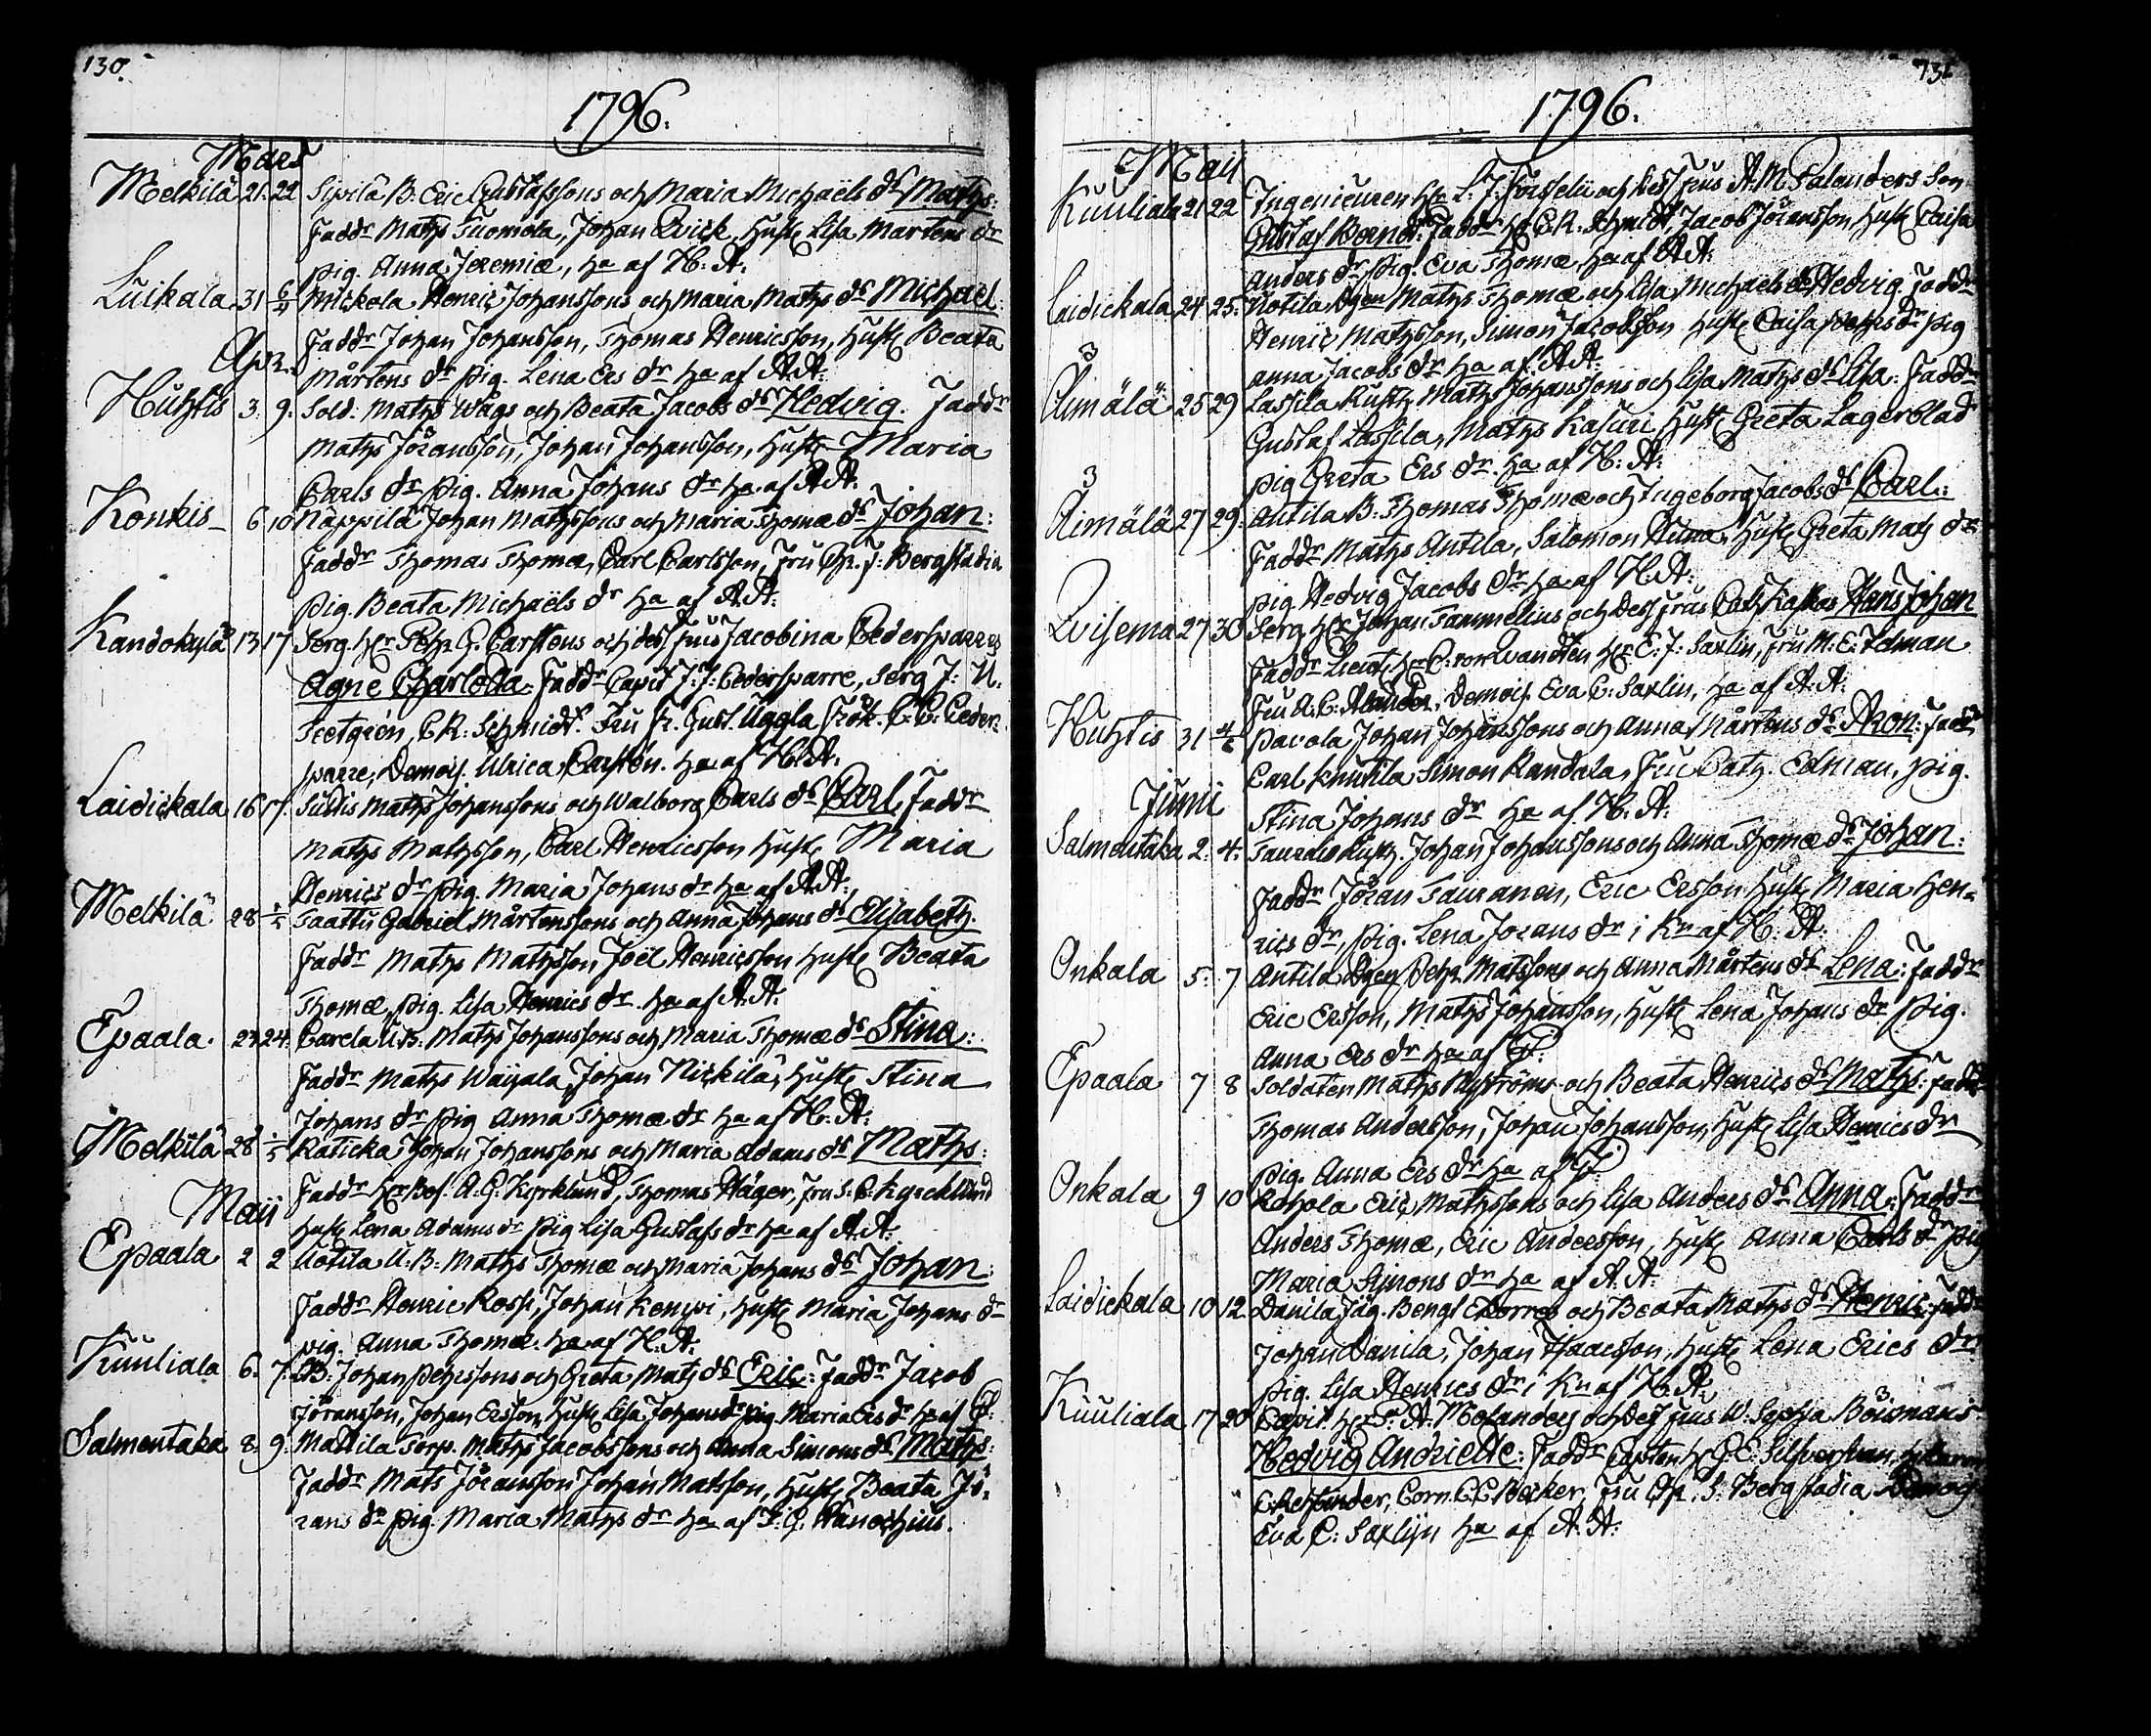 130.
1796.
Mars
Melkilä 21. 22 Sipilä B. Eric Gustafssons och Maria Michaëls ds Maths:
Faddr Maths Tuomola, Johan Qvick, Hustr Lisa Martens dr
pig. Anna Jeremiæ, ha af H. A:
Luikala 31 6/4 Mickola Henric Johanssons och Maria Maths ds Michael.
Faddr Johan Johansson, Thomas Henricsson, Hustr Beata
Apr.
Mårtens dr pig. Lena Ers dr ha af A. A:
Huhtis 3. 9. Sold. Maths Wågs och Beata Jacobs ds Hedvig. Faddr
Maths Jöransson, Johan Johansson, Hustr Maria
Carls dr pig. Anna Johans dr ha af A. A:
Konkis 6. 10 Näppilä Johan Mathssons och Maria Thomæ ds Johan:
Faddr Thomas Thomæ, Carl Carlsson, Fru Chr. J: Bergstadia
pig. Beata Michaëls dr ha af A. A:
Kandokylä 13 17 Serg. Hr Pehr G. Carstens och dess frus Jacobina Cedersparres
Agne Charlotta. Faddr Capit J: J: Cedersparre, Serg J: U.
Feetgrén, C R: Schmidt. Fru Fr. Gust. Uggla Frök. C. C: Ceder-
sparre, Demois. Ulrica Carstén. ha af H. A:
Laidickala 16 17. Suttis Maths Johanssons och Walborg Carls ds Carl. Faddr
Maths Mathsson, Carl Henricsson Hustr Maria
Henrics dr pig. Maria Johans dr ha af A. A:
Melkilä 28 1/5 Taattu Gabriel Mårtenssons och Anna Johans ds Elisabeth.
Faddr Maths Mathsson Joël Henricsson Hustr Beata
Thomæ, pig. Lisa Henrics dr. ha af A. A:
Epaala 23 24: Carela U. B: Maths Johanssons och Maria Thomæ ds Stina:
Faddr Maths Waijala, Johan Nickilä, Hustr Stina
Johans dr pig Anna Thomæ dr ha af H: A:
Melkilä 28 1/5 Raticka Johan Johanssons och Maria Adams ds Maths:
Faddr Hr Bof. A. G. Kyrklund, Thomas Häger, Fru S. C. Kyrcklund
Maij
Hustr Lena Adams dr pig Lisa Gustafs dr ha af A. A:
Epaala 2 2 Uotila U: B: Maths Thomæ och Maria Johans ds Johan:
Faddr Henric Rossi, Johan Kenppi, Hustr Maria Johans dr
pig. Anna Thomæ ha af H. A:
Kuuliala 6. 7. B: Johan Pehrssons och Greta Mats ds Eric: Faddr Jacob
Jöransson, Johan Ersson, Hustr Lisa Johans dr pig. Maria Ers dr ha af
Salmentaka 8. 9. Mattila Torp. Maths Jacobssons och Anna Simons ds Maths:
Faddr Mats Jöransson Johan Matsson, Hustr Beata Jö-
rans dr pig. Maria Maths dr ha af I. G. Hanochius.
131
1796.
Maij
Kuuliala 21 22 Ingenieuren Hr L. J: Forsselii och dess frus A. M Palanders Son
Gustaf Bernd: Faddr Hr C. R. Schmidt, Jacob Jöransson, Hustr Caisa
Anders dr pig. Eva Thomæ ha af A. A:
Laidickala 24 25. Uotila Maths Thomæ och Lisa Michaels ds Hedvig. Faddr
Henric Mathsson, Simon Jacobsson Hustr Caisa Pehrs dr pig
Anna Jacobs dr ha af A. A:
3
Äimälä 25 29 Lassila Rusth. Maths Johanssons och Lisa Maths ds Lisa: Faddr
Gustaf Lassila, Maths Kasuri Hustr Greta Lagerblad
pig Greta Ers dr. ha af H: A:
3
Äimälä 27 29. Antila B: Thomas Thomæ och Ingeborg Jacobs ds Carl.:
Faddr Maths Antila, Salomon Hustr Greta Mats dr
pig Hedvig Jacobs dr ha af H. A:
Qvisema 27 30 Serg. Hr Johan Tammelins och dess frus Cath Kaskas Hans Johan
Faddr Lieut, Hr C. von Qvandten Hr E: J: Saxlin, Fru M: C: Edman
Fru A. C: Alander, Demois. Eva C: Saxlin, ha af A. A:
Huhtis 31 4/6 Pavola Johan Johanssons och Anna Mårtens ds Aron: Faddr
Carl Knutila Simon Randala, Fru Cath. Edman, pig.
Junii
Stina Johans dr ha af H. A:
Salmentaka 2. 4. Rusth. Johan Johanssons och Anna Thomæ ds Johan:
Faddr Jöran Tauranen, Eric Ersson Hustr Maria Hen-
rics dr, pig. Lena Jörans dr i Kn af H: A:
Onkala 5. 7 Antila Pehr Matssons och Anna Mårtens ds Lena: Faddr
Eric Ersson, Maths Johansson, Hustr Lena Johans dr pig.
Anna Ers dr ha af
Epaala 7 8 Soldaten Maths Nyströms och Beata Henrics ds Maths: Faddr
Thomas Andersson, Johan Johansson, Hustr Lisa Henrics dr
pig. Anna Ers dr ha af
Onkala 9 10 Rohola Eric Mathssons och Lisa Anders ds Anna. Faddr
Anders Thomæ, Eric Andersson, Hustr Anna Carls dr pig
Maria Simons dr ha af A. A:
Laidickala 10 12 Danila Jäg. Bengt och Beata Maths ds Henric. Faddr
Johan Danila, Johan Isacsson, Hustr Lena Erics dr
pig. Lisa Henrics dr i Kn af H. A:
Kuuliala 17 20 Capit. Hr S. A: Molanders och dess frus W. Sophia Böismans
Hedvig Andriette: Faddr Capiten Hr G. E: Silfversvan,
Corn. C C Becker, Fru Chr. S: Bergstadia Demois
Eva C: Saxlijn ha af A. A: